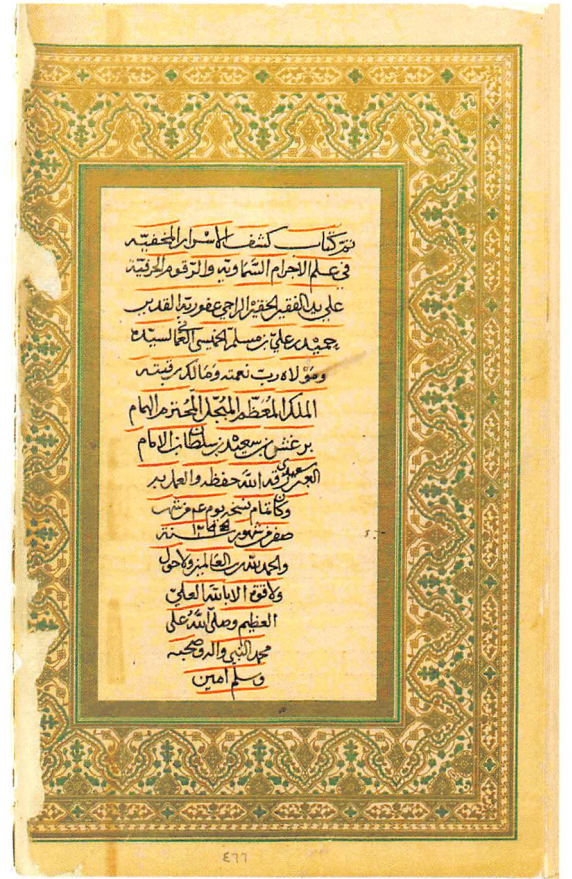 تم كتاب كشف الاسرار المخفيه
في علم الاجرام السماويه والرقوم الحرفيه
على يد الفقير الحقير الراجي عفو ربه القدير
حميد بن علي بن مسلم الخميسي لسيده
ومولاه رب نعمته ومالك رقبته
الملك المعظم المبجل المحترم الهمام
برغش بن سعيد بن سلطان بن الامام
الله حفظه
وكان تمام نسخه يوم من شهر
صفر من شهور سنة
والحمد لله رب العالمين ولا حول
ولا قوة الا بالله العلي
العظيم وصلى الله على
محمد النبي واله وصحبه
وسلم امين
٤٦٦